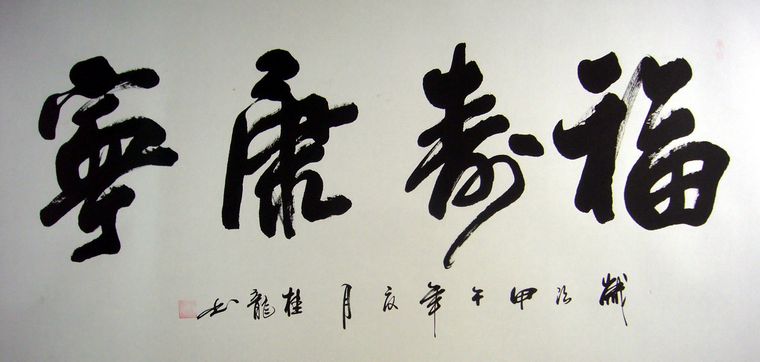 福壽康寧
歲次甲午年夏月桂龍书